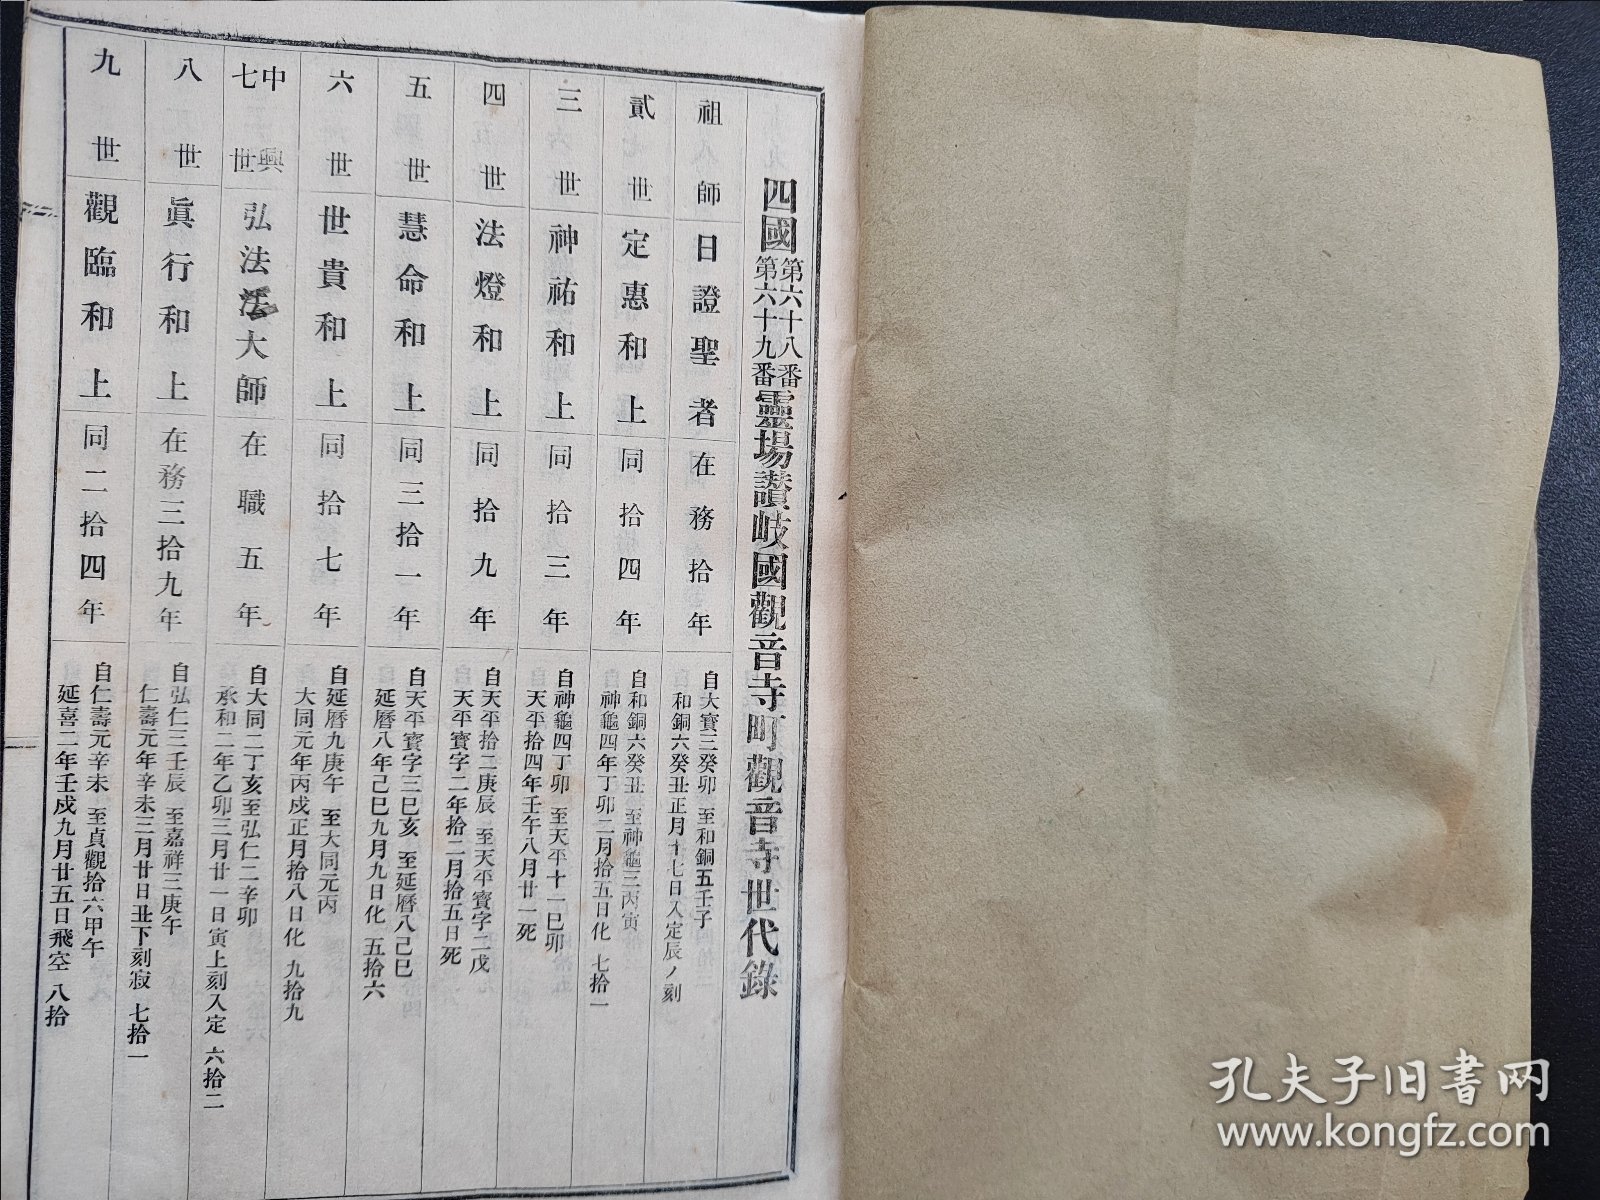 四國第六十八番第六十九番靈場讃岐國觀音寺町觀音寺世代錄
祖師 日證聖者 在務拾年 自大寶三癸卯 至和銅五壬子
和銅六癸丑正月十七日入定辰ノ刻
貳世 定惠和上 同拾四年 自和銅六癸丑 至神龜三丙寅
神龜四年丁卯二月拾五日化 七拾一
三世 神祐和上 同拾三年 自神龜四丁卯 至天平十一己卯
天平拾四年壬午八月廿一死
四世 法燈和上 同拾九年 自天平拾二庚辰 至天平寶字二戊
天平寶字二年拾二月拾五日死
五世 慧命和上 同三拾一年 自天平寶字三巳亥 至延曆八己巳
延曆八年己巳九月九日化 五拾六
六世 世貴和上 同拾七年 自延曆九庚午 至大同元丙
大同元年丙戌正月拾八日化 九拾九
中興七世 弘法法大師 在職五年 自大同二丁亥至弘仁二辛卯
承和二年乙卯三月廿一日寅上刻入定 六拾二
八世 眞行和上 在務三拾九年 自弘仁三壬辰 至嘉祥三庚午
仁壽元年辛未三月廿日丑下刻寂 七拾一
九世 觀臨和上 同二拾四年 自仁壽元辛未 至貞觀拾六甲午
延喜二年壬戌九月廿五日飛空 八拾
孔夫子旧书网
www.kongfz.com